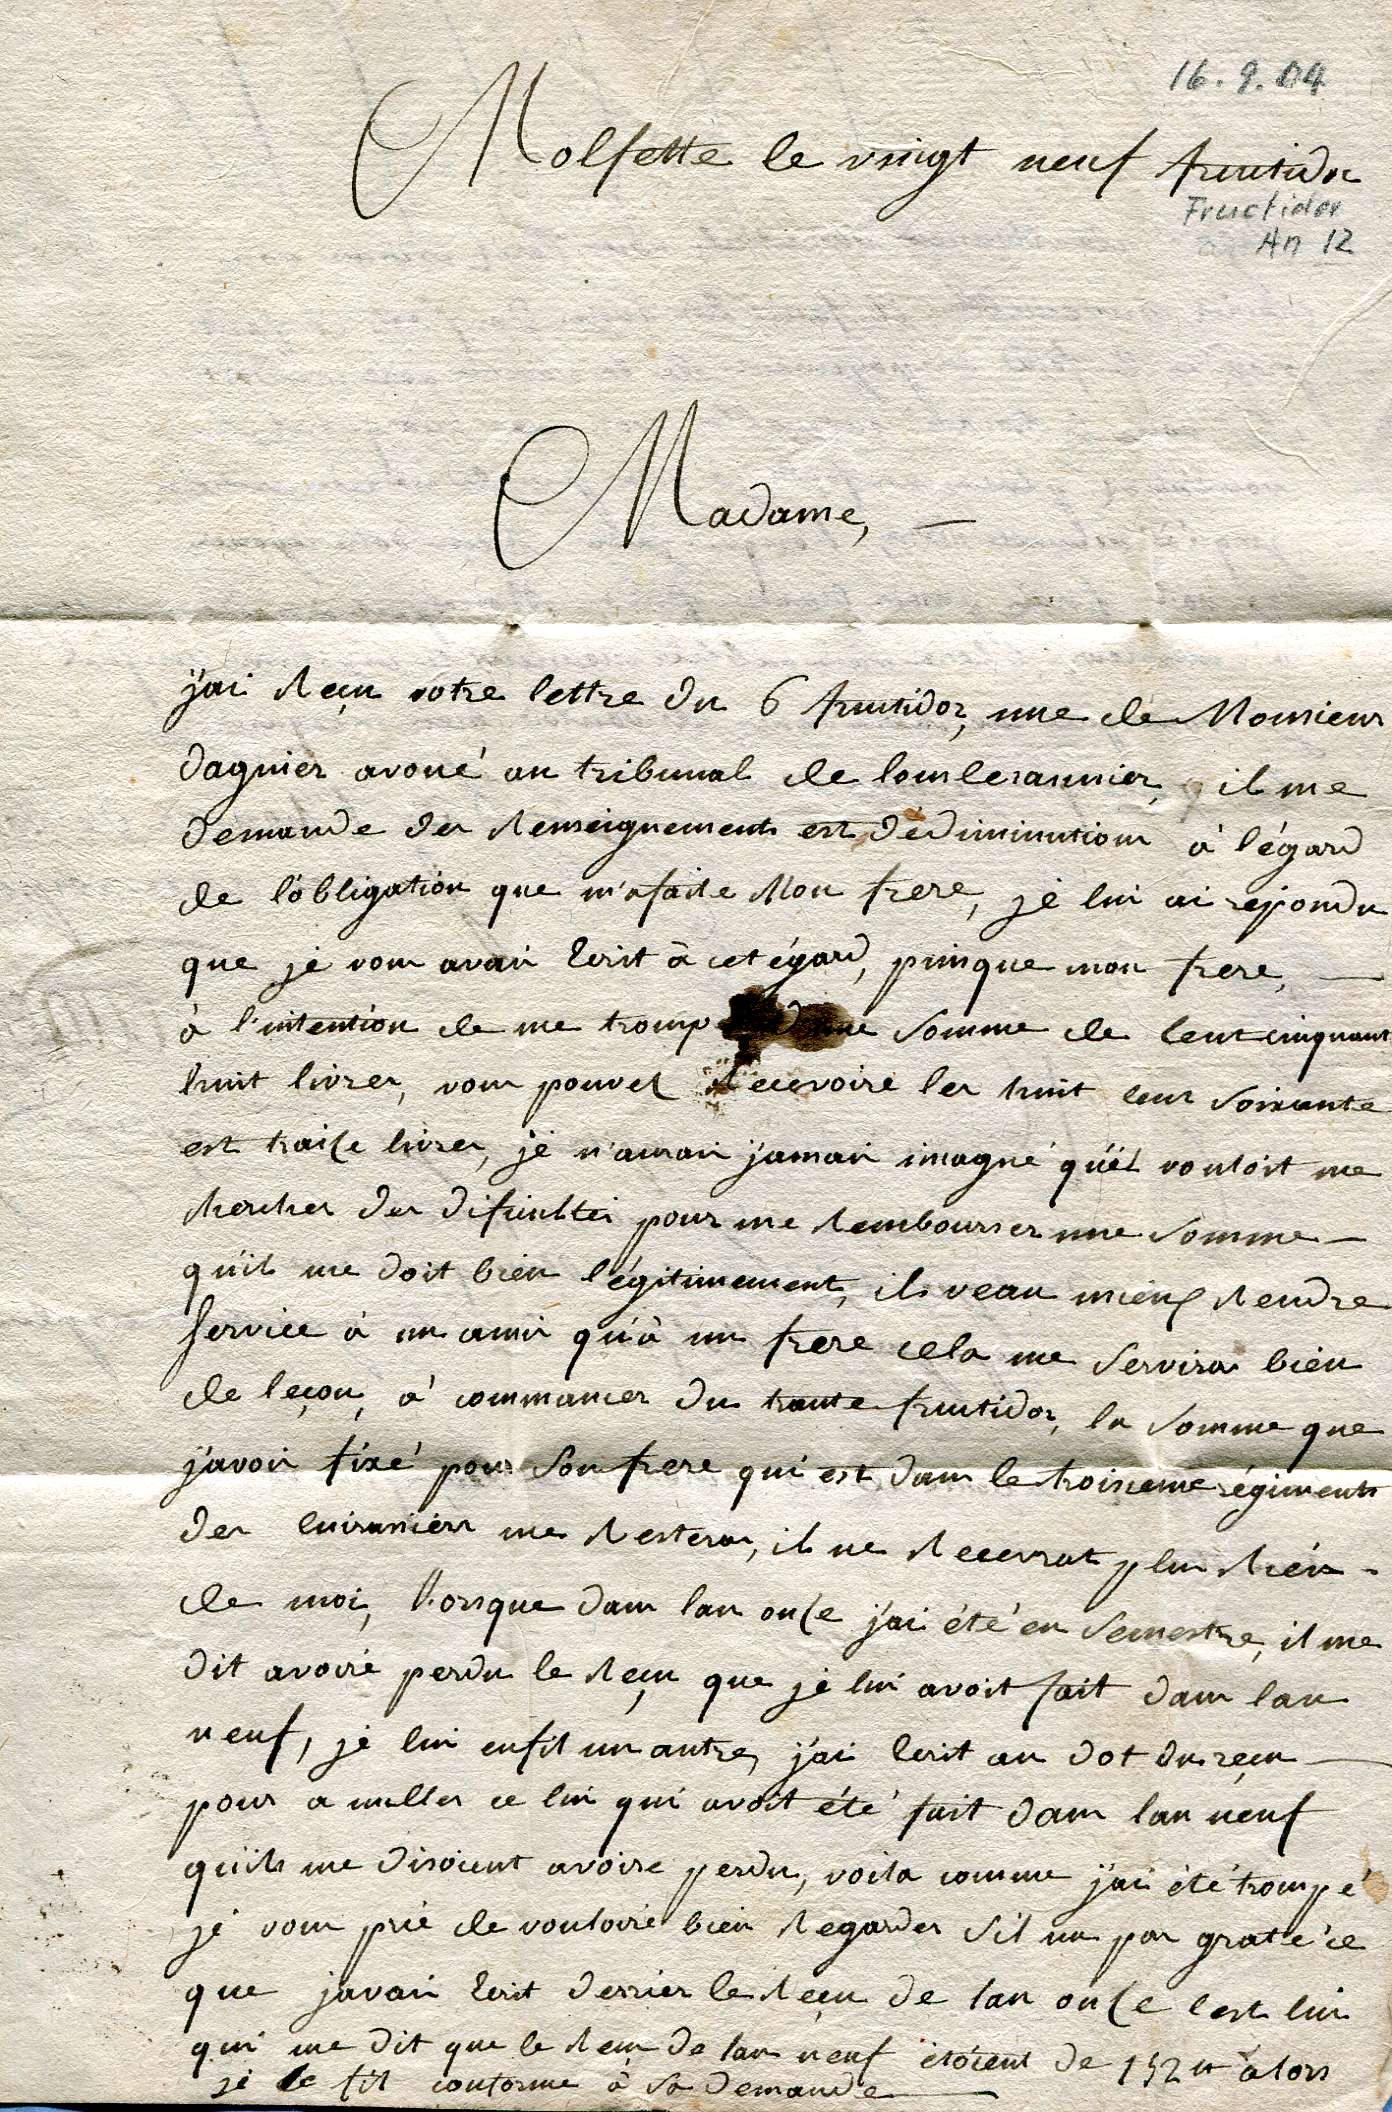 16.9.04
Molfette le vingt neuf fructidor
Fructidor
An 12
Madame, —
j'ai Reçu votre lettre du 6 fructidor, une de Monsieur
dagnier avoué au tribunal de lonslesaunier, il me
demande des Renseignements est dédiminutions à l'égard
de l'obligation que m'a faite Mon frere, je lui ai repondu
que je vous avais Ecrit à cet égard, puisque mon frere, —
à l'intention de me tromp une somme de Cent cinquant
huit livres, vous pouvez Recevoire les huit cens soixante
est traize livres, je n'aurai jamais imagné qu'el vouloit me
chercher des dificultés pour me Rembourser une somme —
qu'il me doit bien légitimement, ils veau mieux Rendre
Service à un amis qu'à un frere cela me servira bien
de leçon, à commancer du trante fructidor, la somme que
j'avois fixé pour son frere qui est dans le troisieme régiments
des Cuirassiers me Restera, il ne Recevrat plus Rién -
de moi, Lorsque dans lan onze j'ai été en Semestre, il me
dit avoire perdu le Reçu que je lui avoit fait dans lan
neuf, je lui enfit un autre, j'ai Ecrit au dot du reçu —
pour a nuller ce lui qui avoit été fait dans lan neuf
qu'ils me disoient avoire perdu, voila comme j'ai été trompé
je vous prié de vouloire bien Regarder s'il na pas graté ce
que javais Ecrit derrier le Reçu de lan onze Cest lui
qui me dit que le Reçu de lan neuf étoient de 152 ₶ alors
je le fit conforme à sa demande —